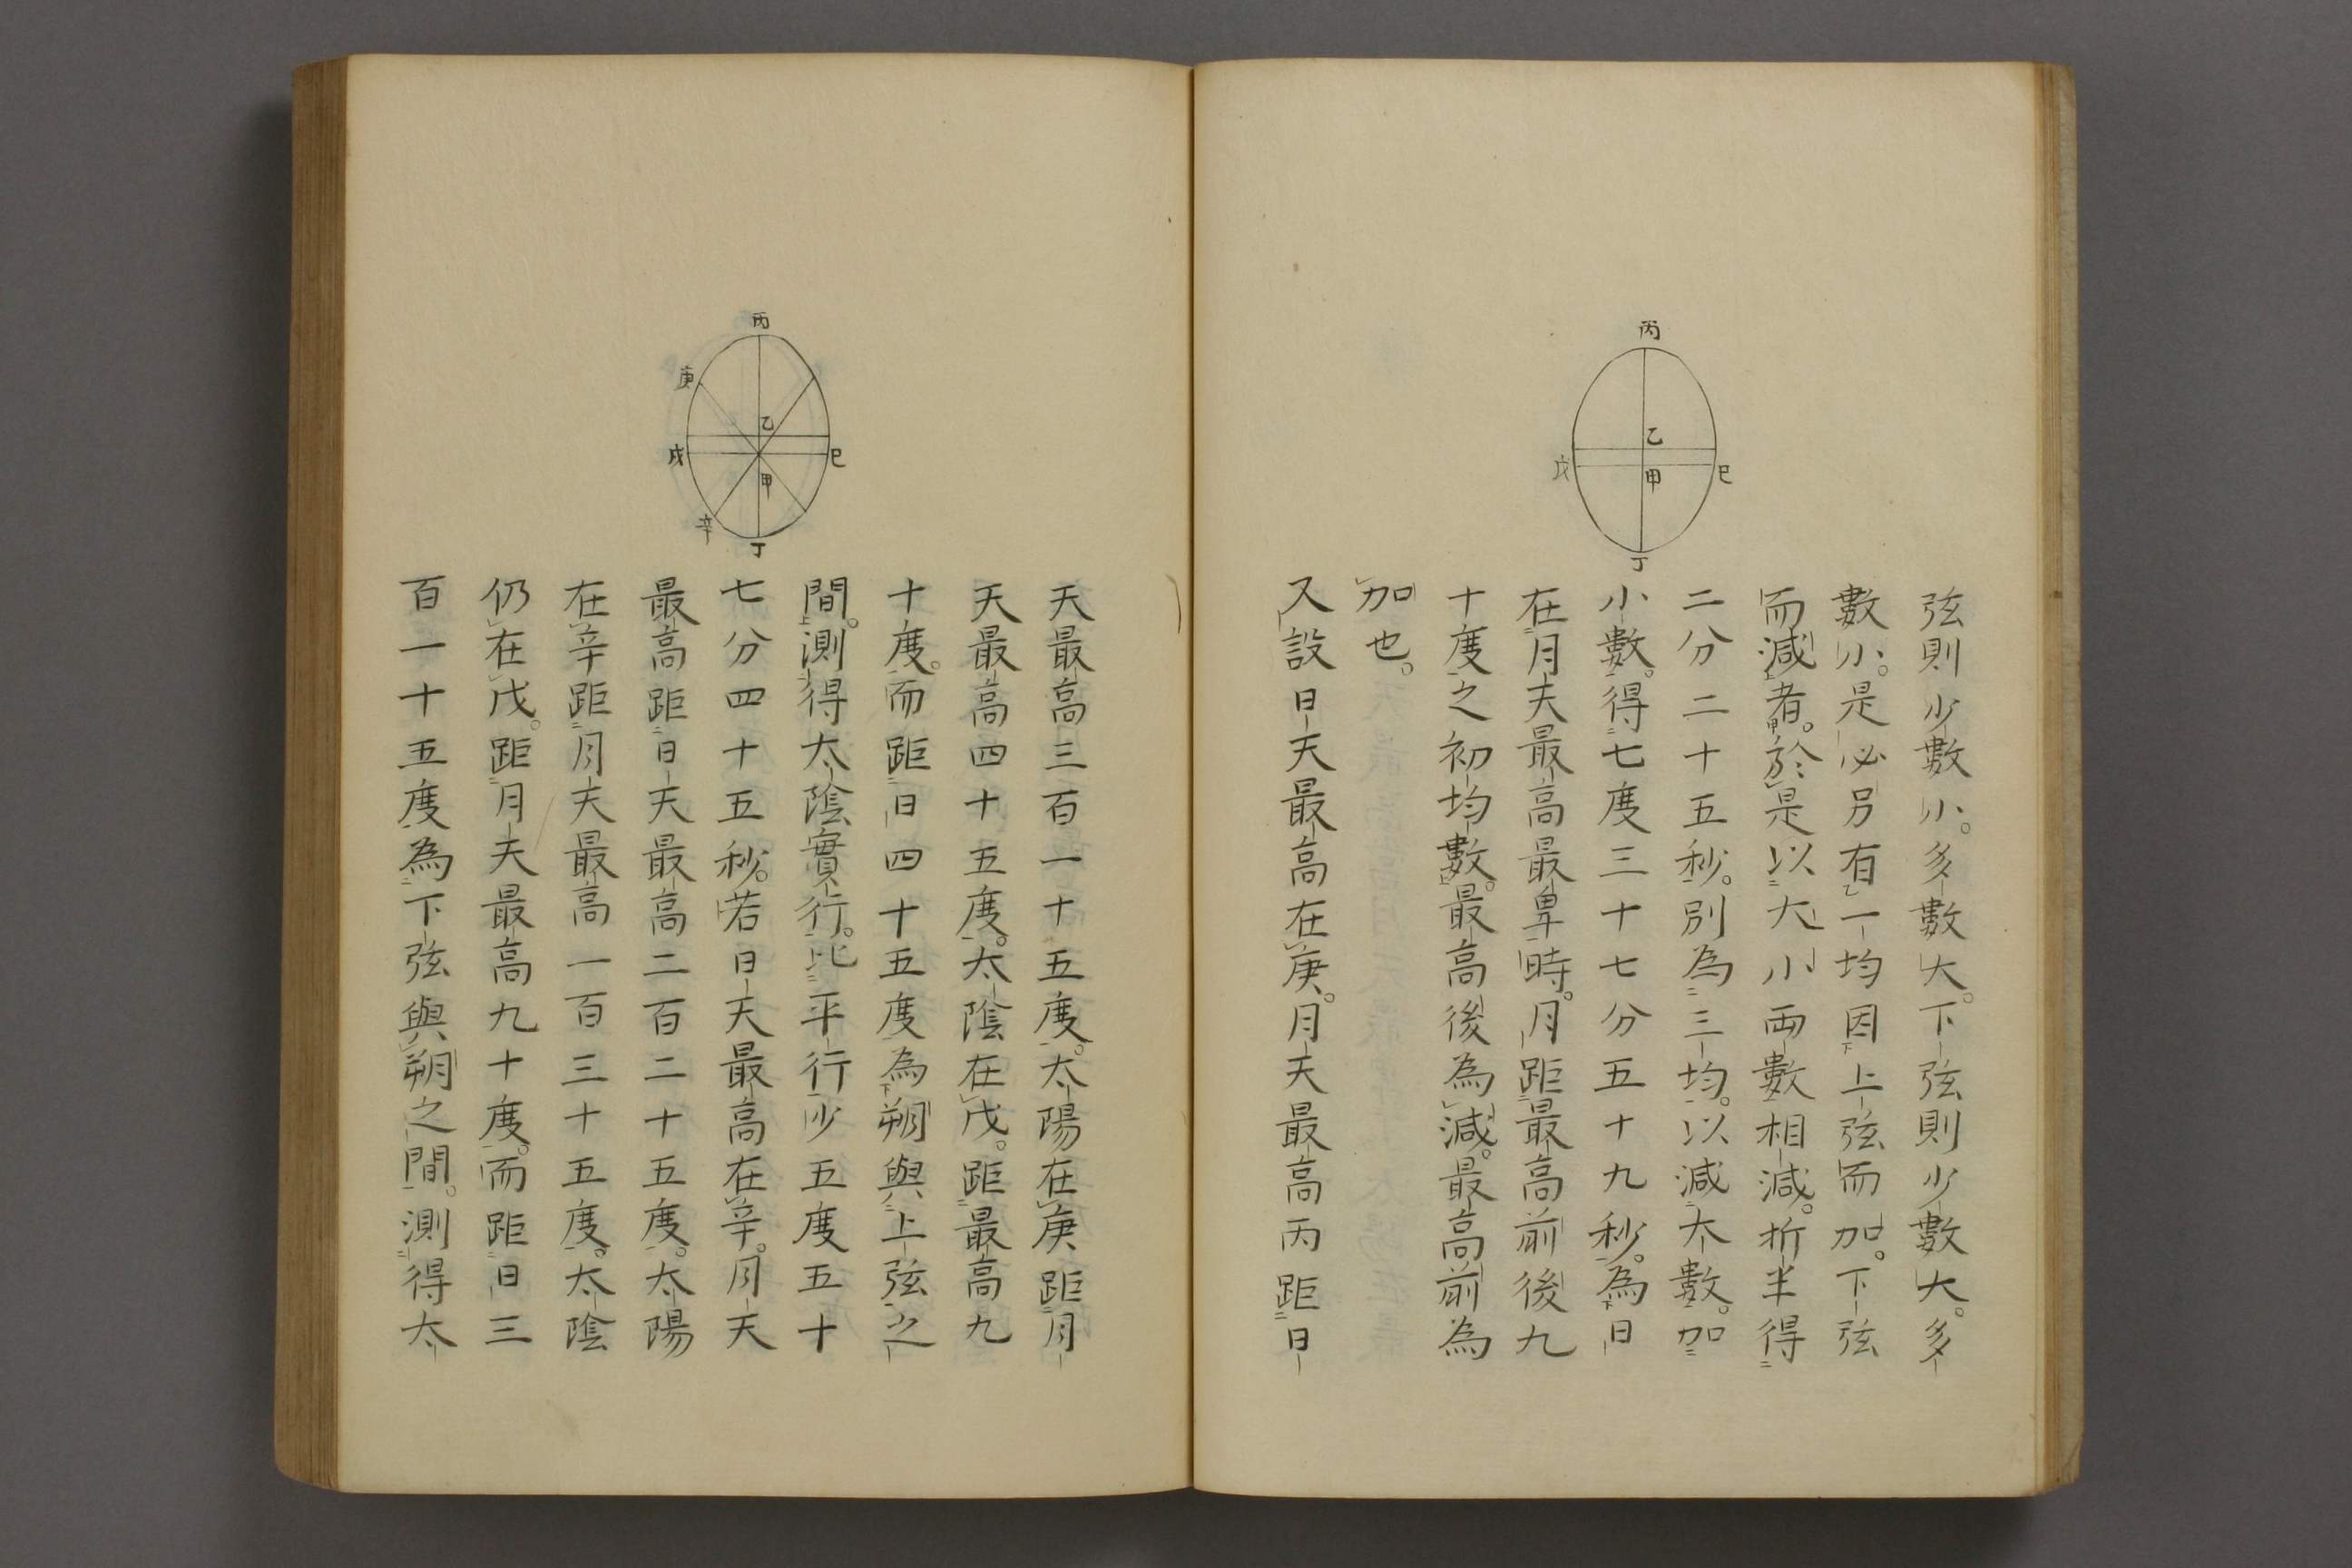 丙
乙
甲
戊
巳
丁
弦則少數小。多數大。下弦則少數大。多
數小。是必另有一均因上弦而加。下弦
而減者。於是以大小兩數相減。折半得
二分二十五秒。別為三均。以減大數。加
小數。得七度三十七分五十九秒。為日
在月天最高最卑時。月距最高前後九
十度之初均數。最高後為減。最高前為
加也。
又設日天最高在庚。月天最高丙距日
丙
庚
乙
戊
巳
甲
辛
丁
天最高三百一十五度。太陽在庚距月
天最高四十五度。太陰在戊。距最高九
十度。而距日四十五度為朔與上弦之
間。測得太陰實行。比平行少五度五十
七分四十五秒。若日天最高在辛。月天
最高距日天最高二百二十五度。太陽
在辛距月天最高一百三十五度。太陰
仍在戊。距月天最高九十度。而距日三
百一十五度為下弦與朔之間。測得太